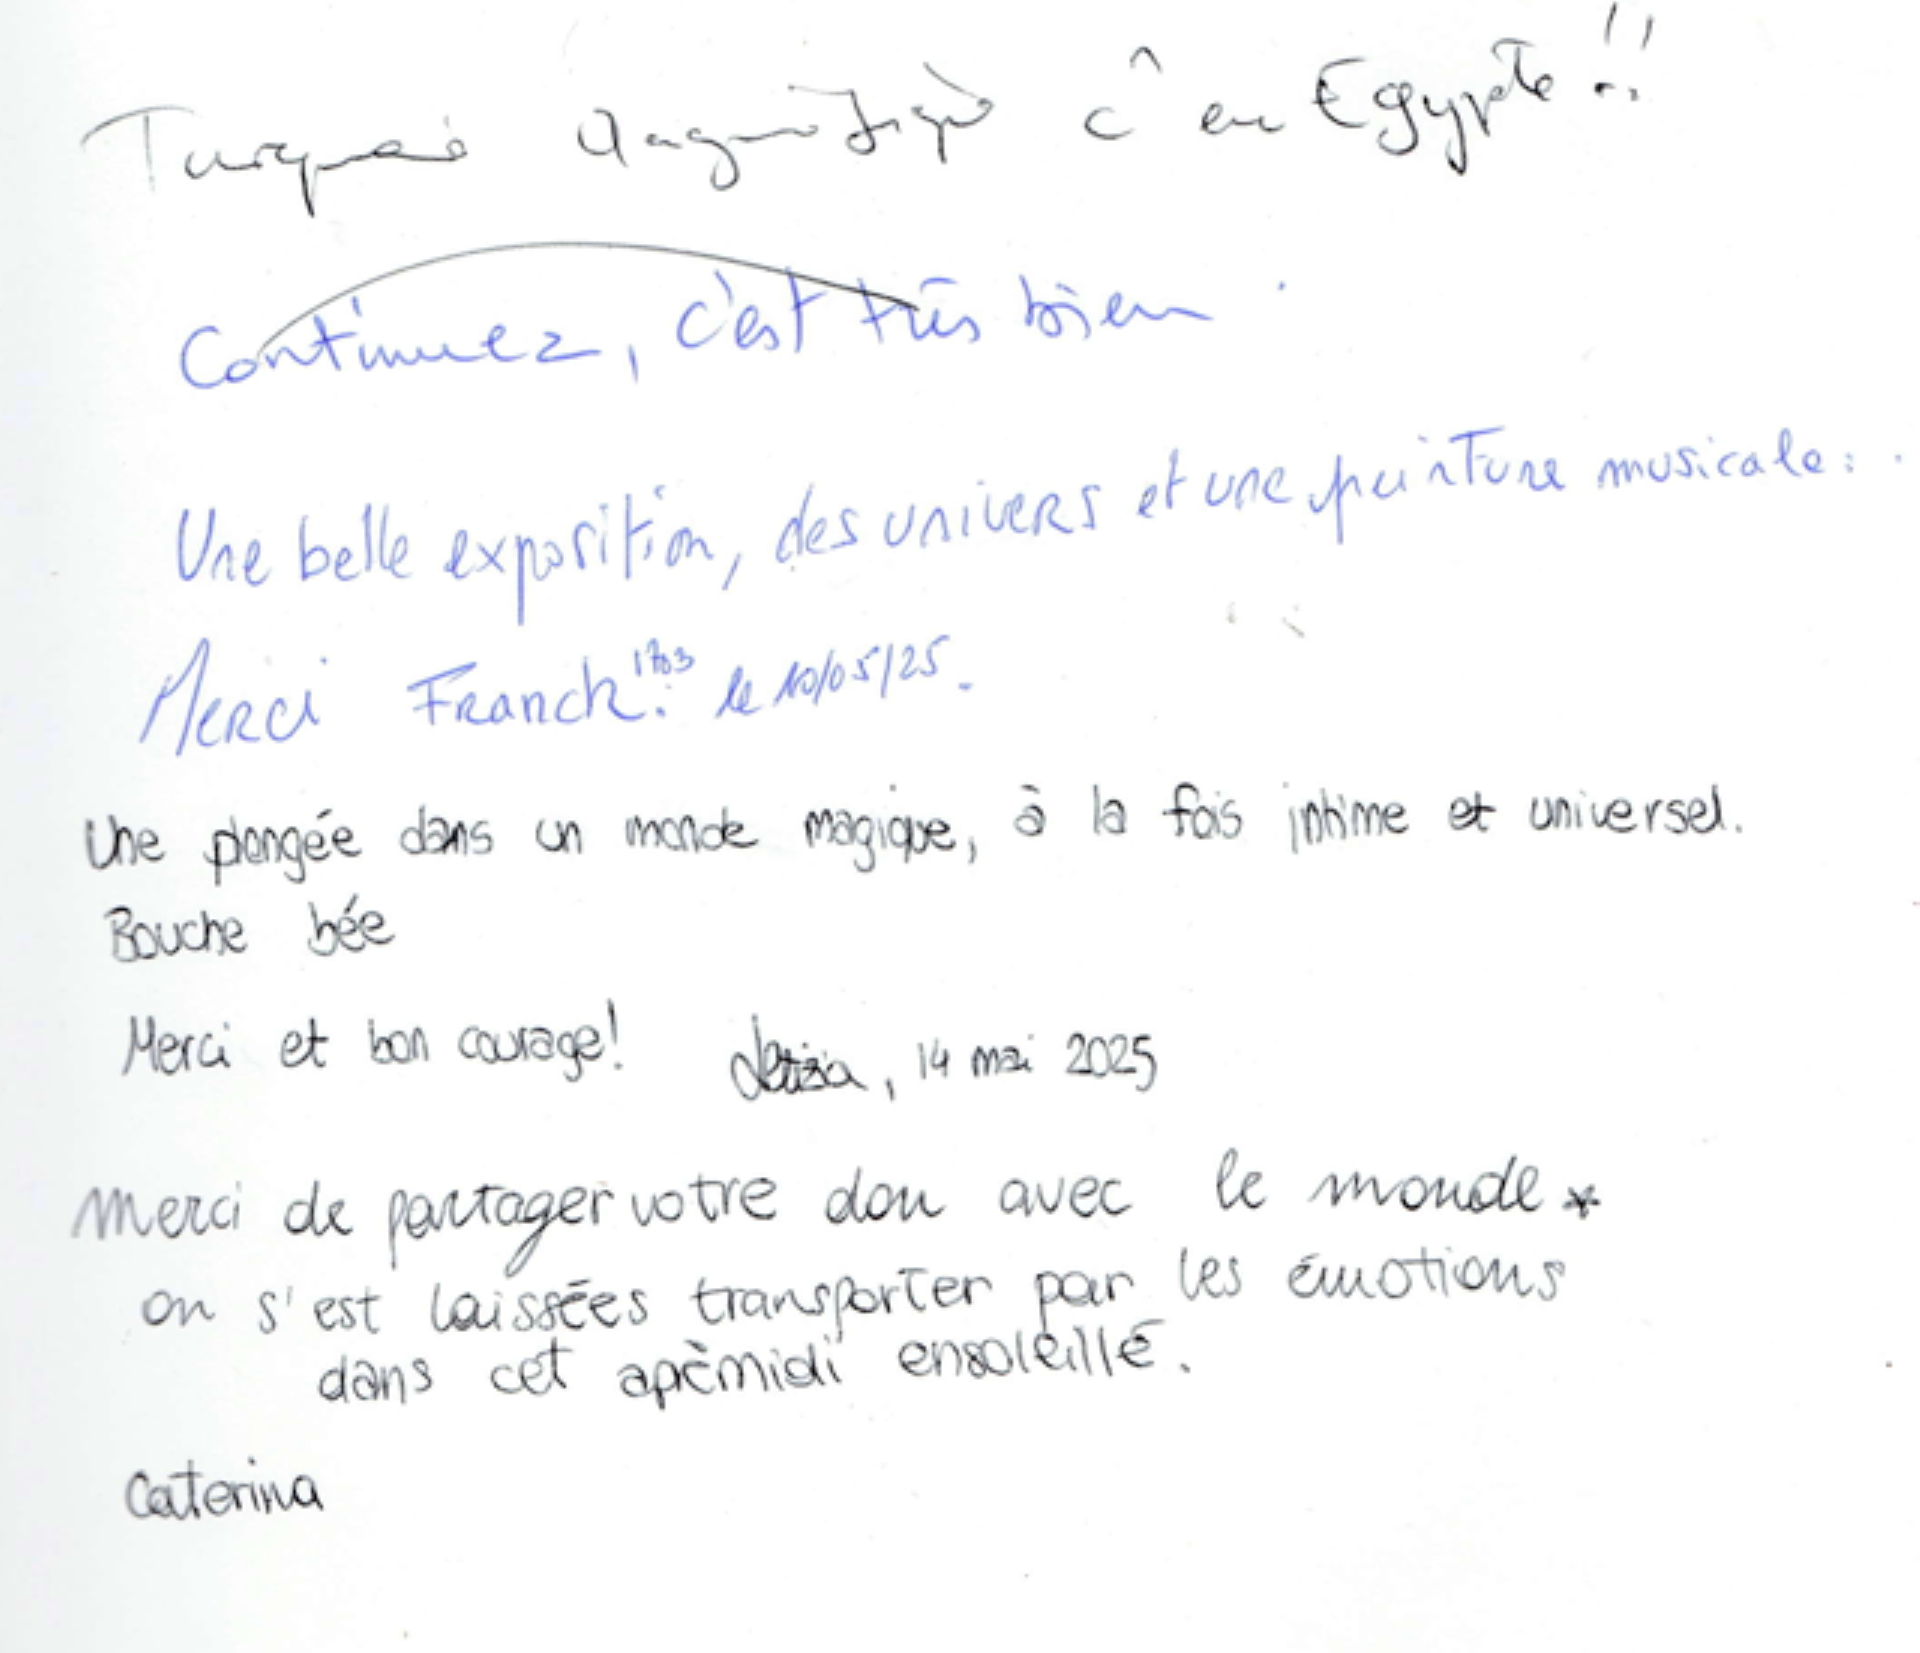 Turquoise Magnifique c^ en Egypte !!
Continuez, c'est très bien.
Une belle exposition, des univers et une peinture musicale.
Merci Franck 1703. le 10/05/25.
Une plongée dans un monde magique, à la fois intime et universel.
Bouche bée
Merci et bon courage! Letizia, 14 mai 2025
Merci de partager votre don avec le monde *
on s'est laissées transporter par les émotions
dans cet aprèmidi ensoleillé.
Caterina